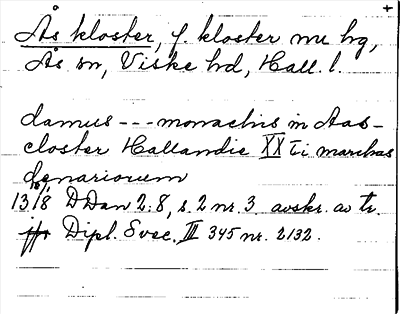 +
Ås kloster, f. kloster m hg,
Ås sn, Viske hd, Hall. l.
damus --- monachis in Aas-
closter Hallandie XX ti marchas
denariorum
13 18 DDan 2:8, s. 2 nr. 3 avskr. av tr.
jfr Dipl. Svec. III 345 nr. 2132.